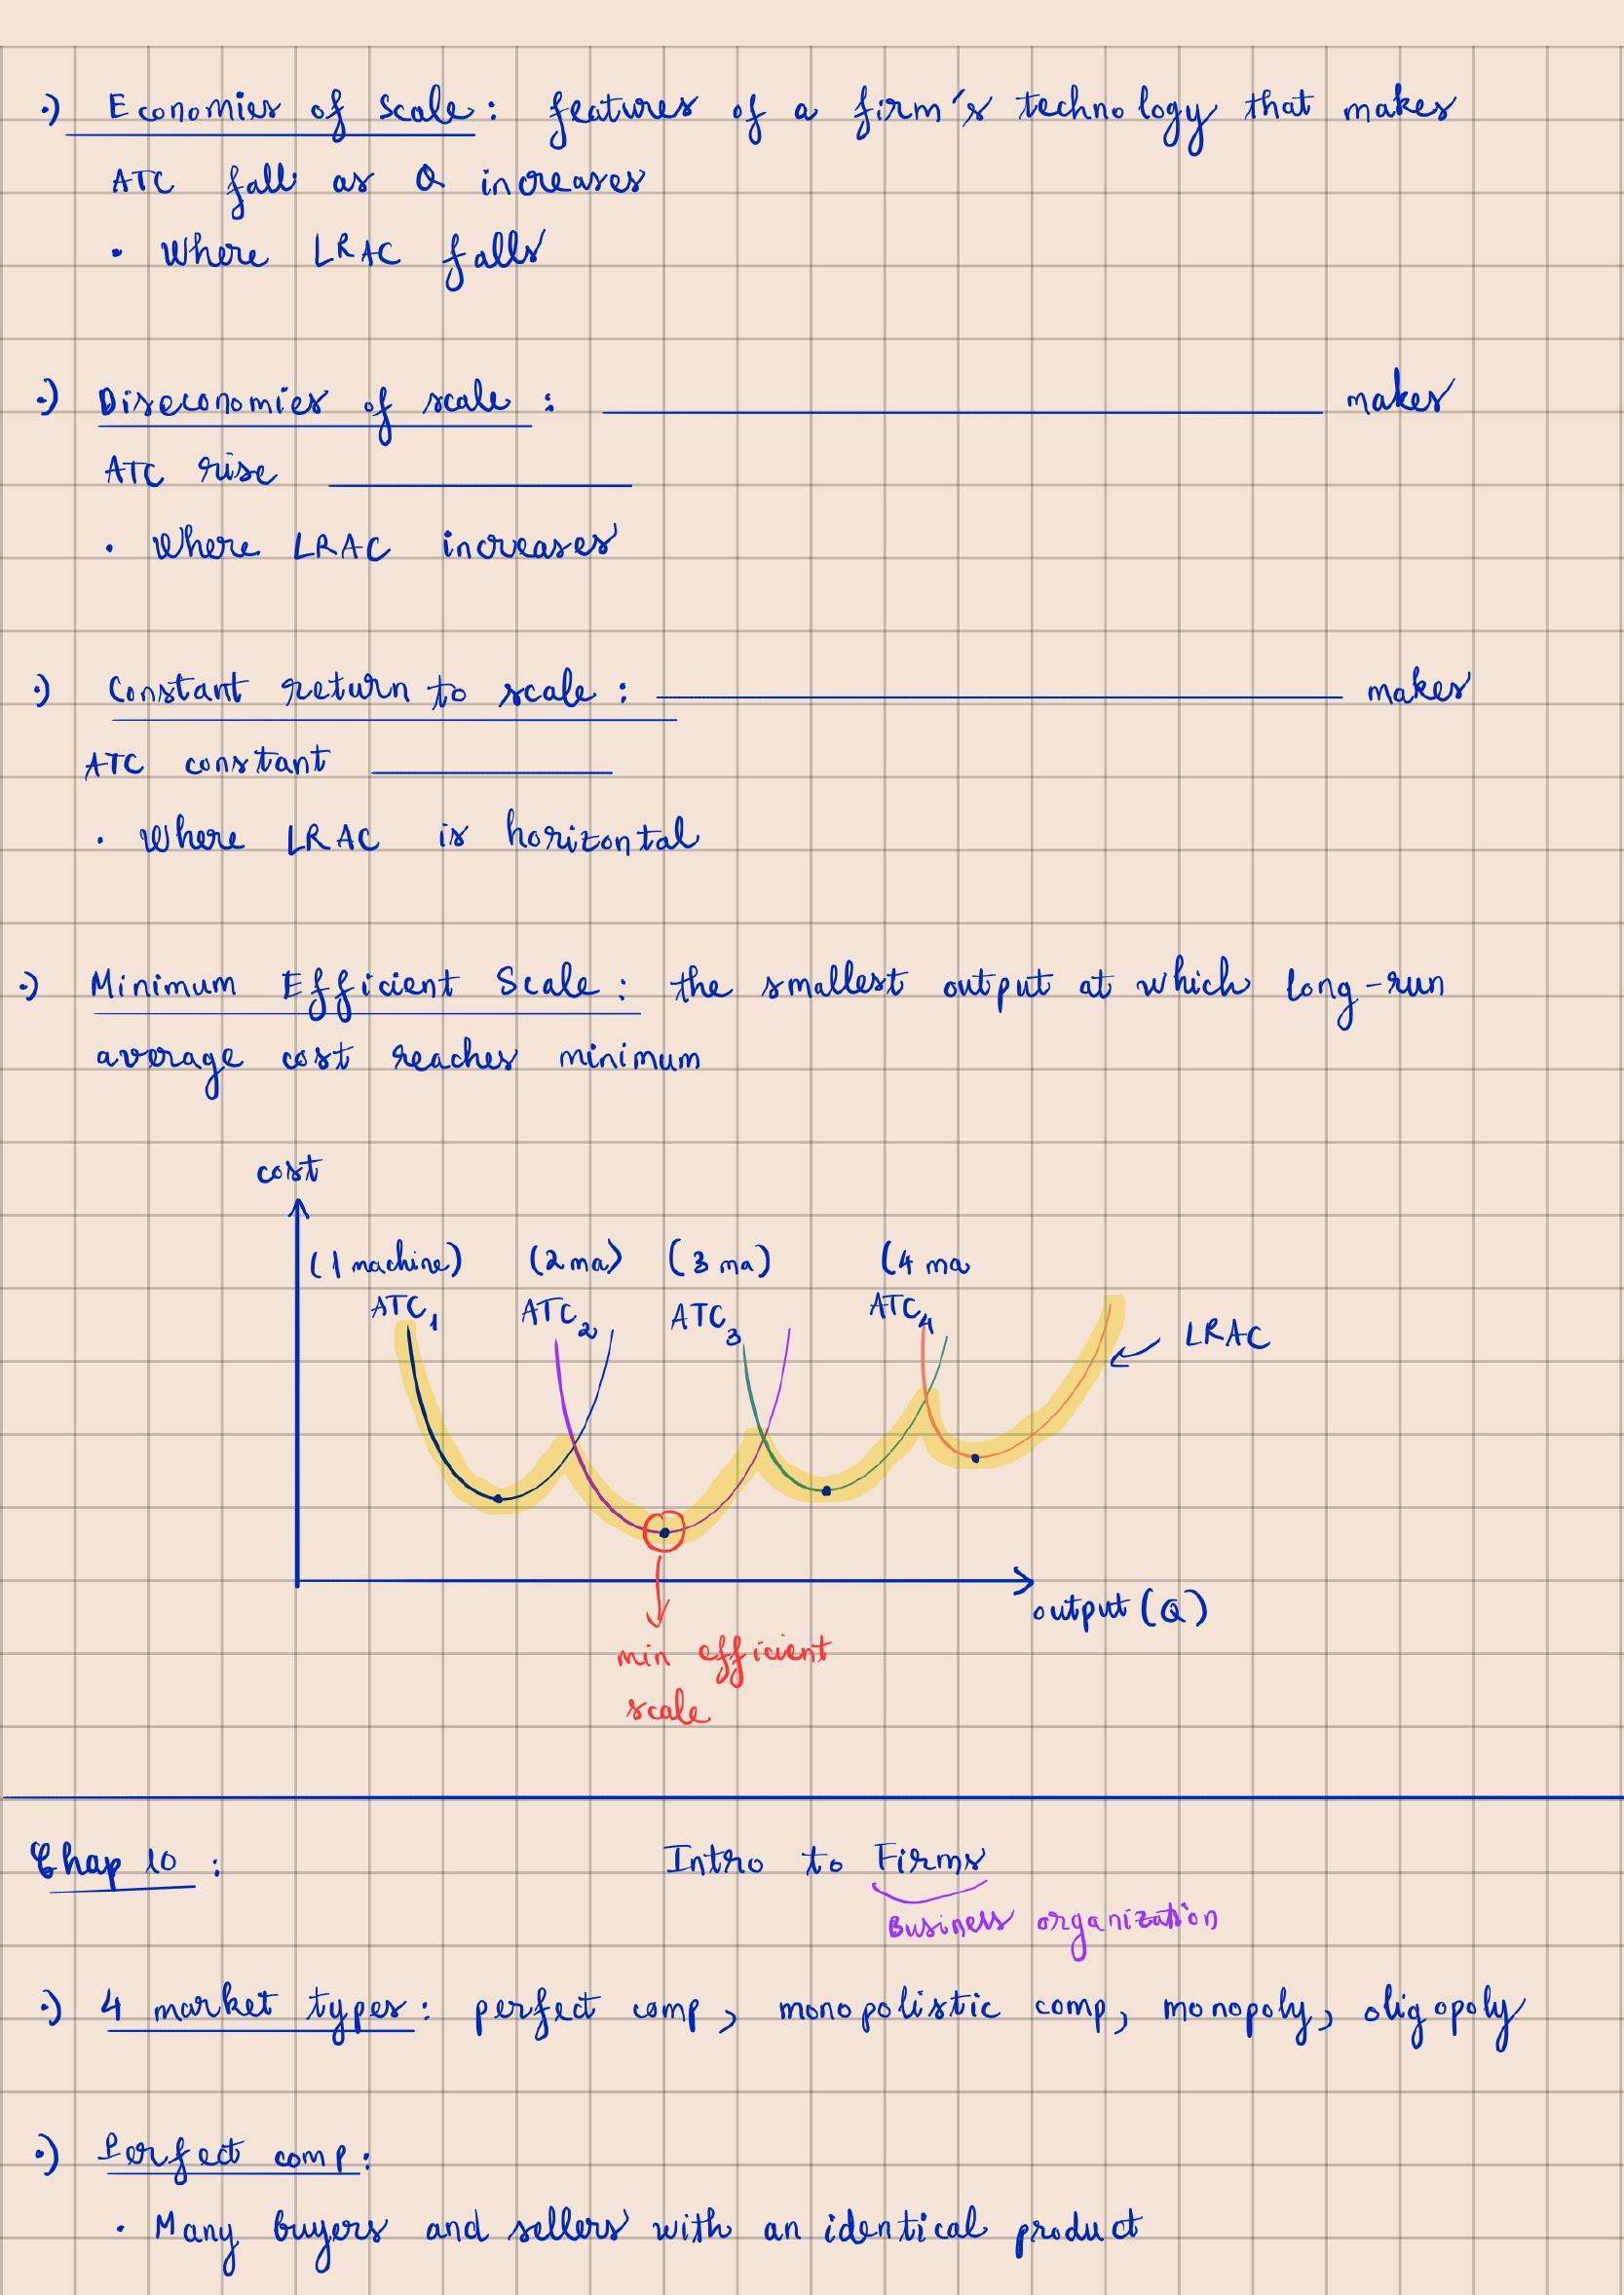 •) Economies of scale: features of a firm's technology that makes
ATC fall as Q increases
• Where LRAC falls
•) Diseconomies of scale : ________ makes
ATC rise ________
• Where LRAC increases
•) Constant return to scale : ________ makes
ATC constant ________
• Where LRAC is horizontal
•) Minimum Efficient Scale: the smallest output at which long-run
average cost reaches minimum
cost
(1 machine) (2 ma) (3 ma) (4 ma
ATC1 ATC2 ATC3 ATC4
LRAC
output (Q)
min efficient
scale
Chap 10 : Intro to Firms
Business organization
•) 4 market types: perfect comp, monopolistic comp, monopoly, oligopoly
•) Perfect comp:
• Many buyers and sellers with an identical product